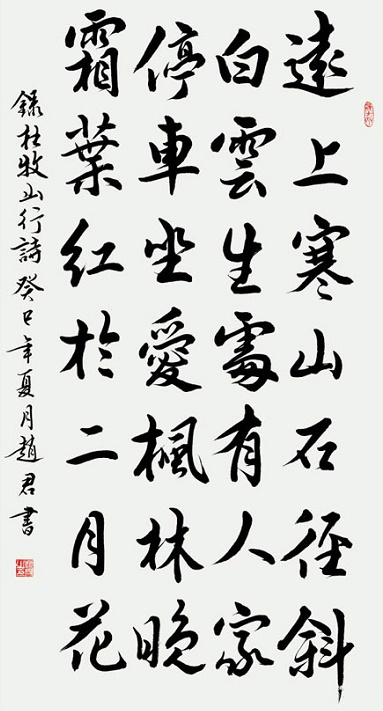 遠上寒山石徑斜
白雲生處有人家
停車坐愛楓林晚
霜葉紅於二月花
錄杜牧山行詩癸巳年夏月趙君書